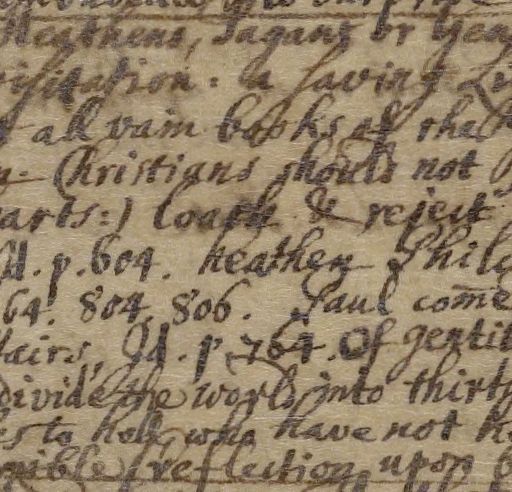 Heathens, Pagans or Gen
visitation: a saving
all vain books of the
Christians should not
arts:) loath & reject
Id. p. 604. heathen Philo
64. 804. 806. Paul come
fairs, Id. p. 764. Of gentil
divide the world into thirty
to hell, who have not
reflection upon